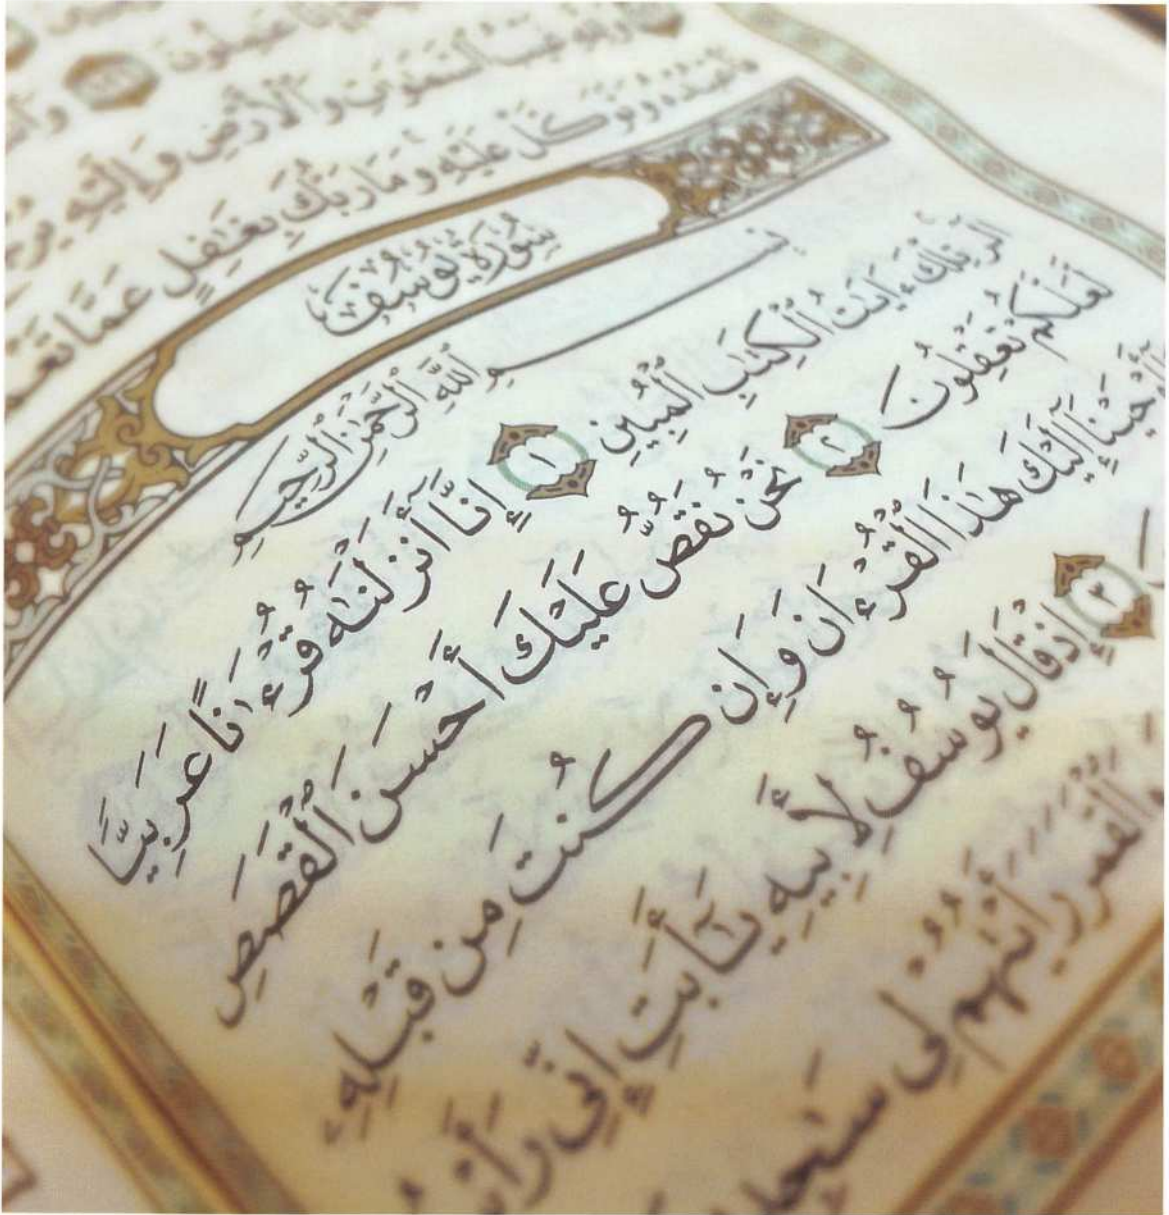 تَعْمَلُونَ ١٢١ وَٱن
وَلِلَّهِ غَيْبُ ٱلسَّمَٰوَٰتِ وَٱلْأَرْضِ وَإِلَيْهِ يُرْجَ
فَٱعْبُدْهُ وَتَوَكَّلْ عَلَيْهِ وَمَا رَبُّكَ بِغَٰفِلٍ عَمَّا تَعْمَ
سُورَةُ يُوسُفَ
بِسْمِ ٱللَّهِ ٱلرَّحْمَٰنِ ٱلرَّحِيمِ
الٓر تِلْكَ ءَايَٰتُ ٱلْكِتَٰبِ ٱلْمُبِينِ ١ إِنَّآ أَنزَلْنَٰهُ قُرْءَٰنًا عَرَبِيًّا
لَّعَلَّكُمْ تَعْقِلُونَ ٢ نَحْنُ نَقُصُّ عَلَيْكَ أَحْسَنَ ٱلْقَصَصِ
أَوْحَيْنَآ إِلَيْكَ هَٰذَا ٱلْقُرْءَانَ وَإِن كُنتَ مِن قَبْلِهِۦ
٣ إِذْ قَالَ يُوسُفُ لِأَبِيهِ يَٰٓأَبَتِ إِنِّى رَأَيْتُ
وَٱلْقَمَرَ رَأَيْتُهُمْ لِى سَٰجِدِ